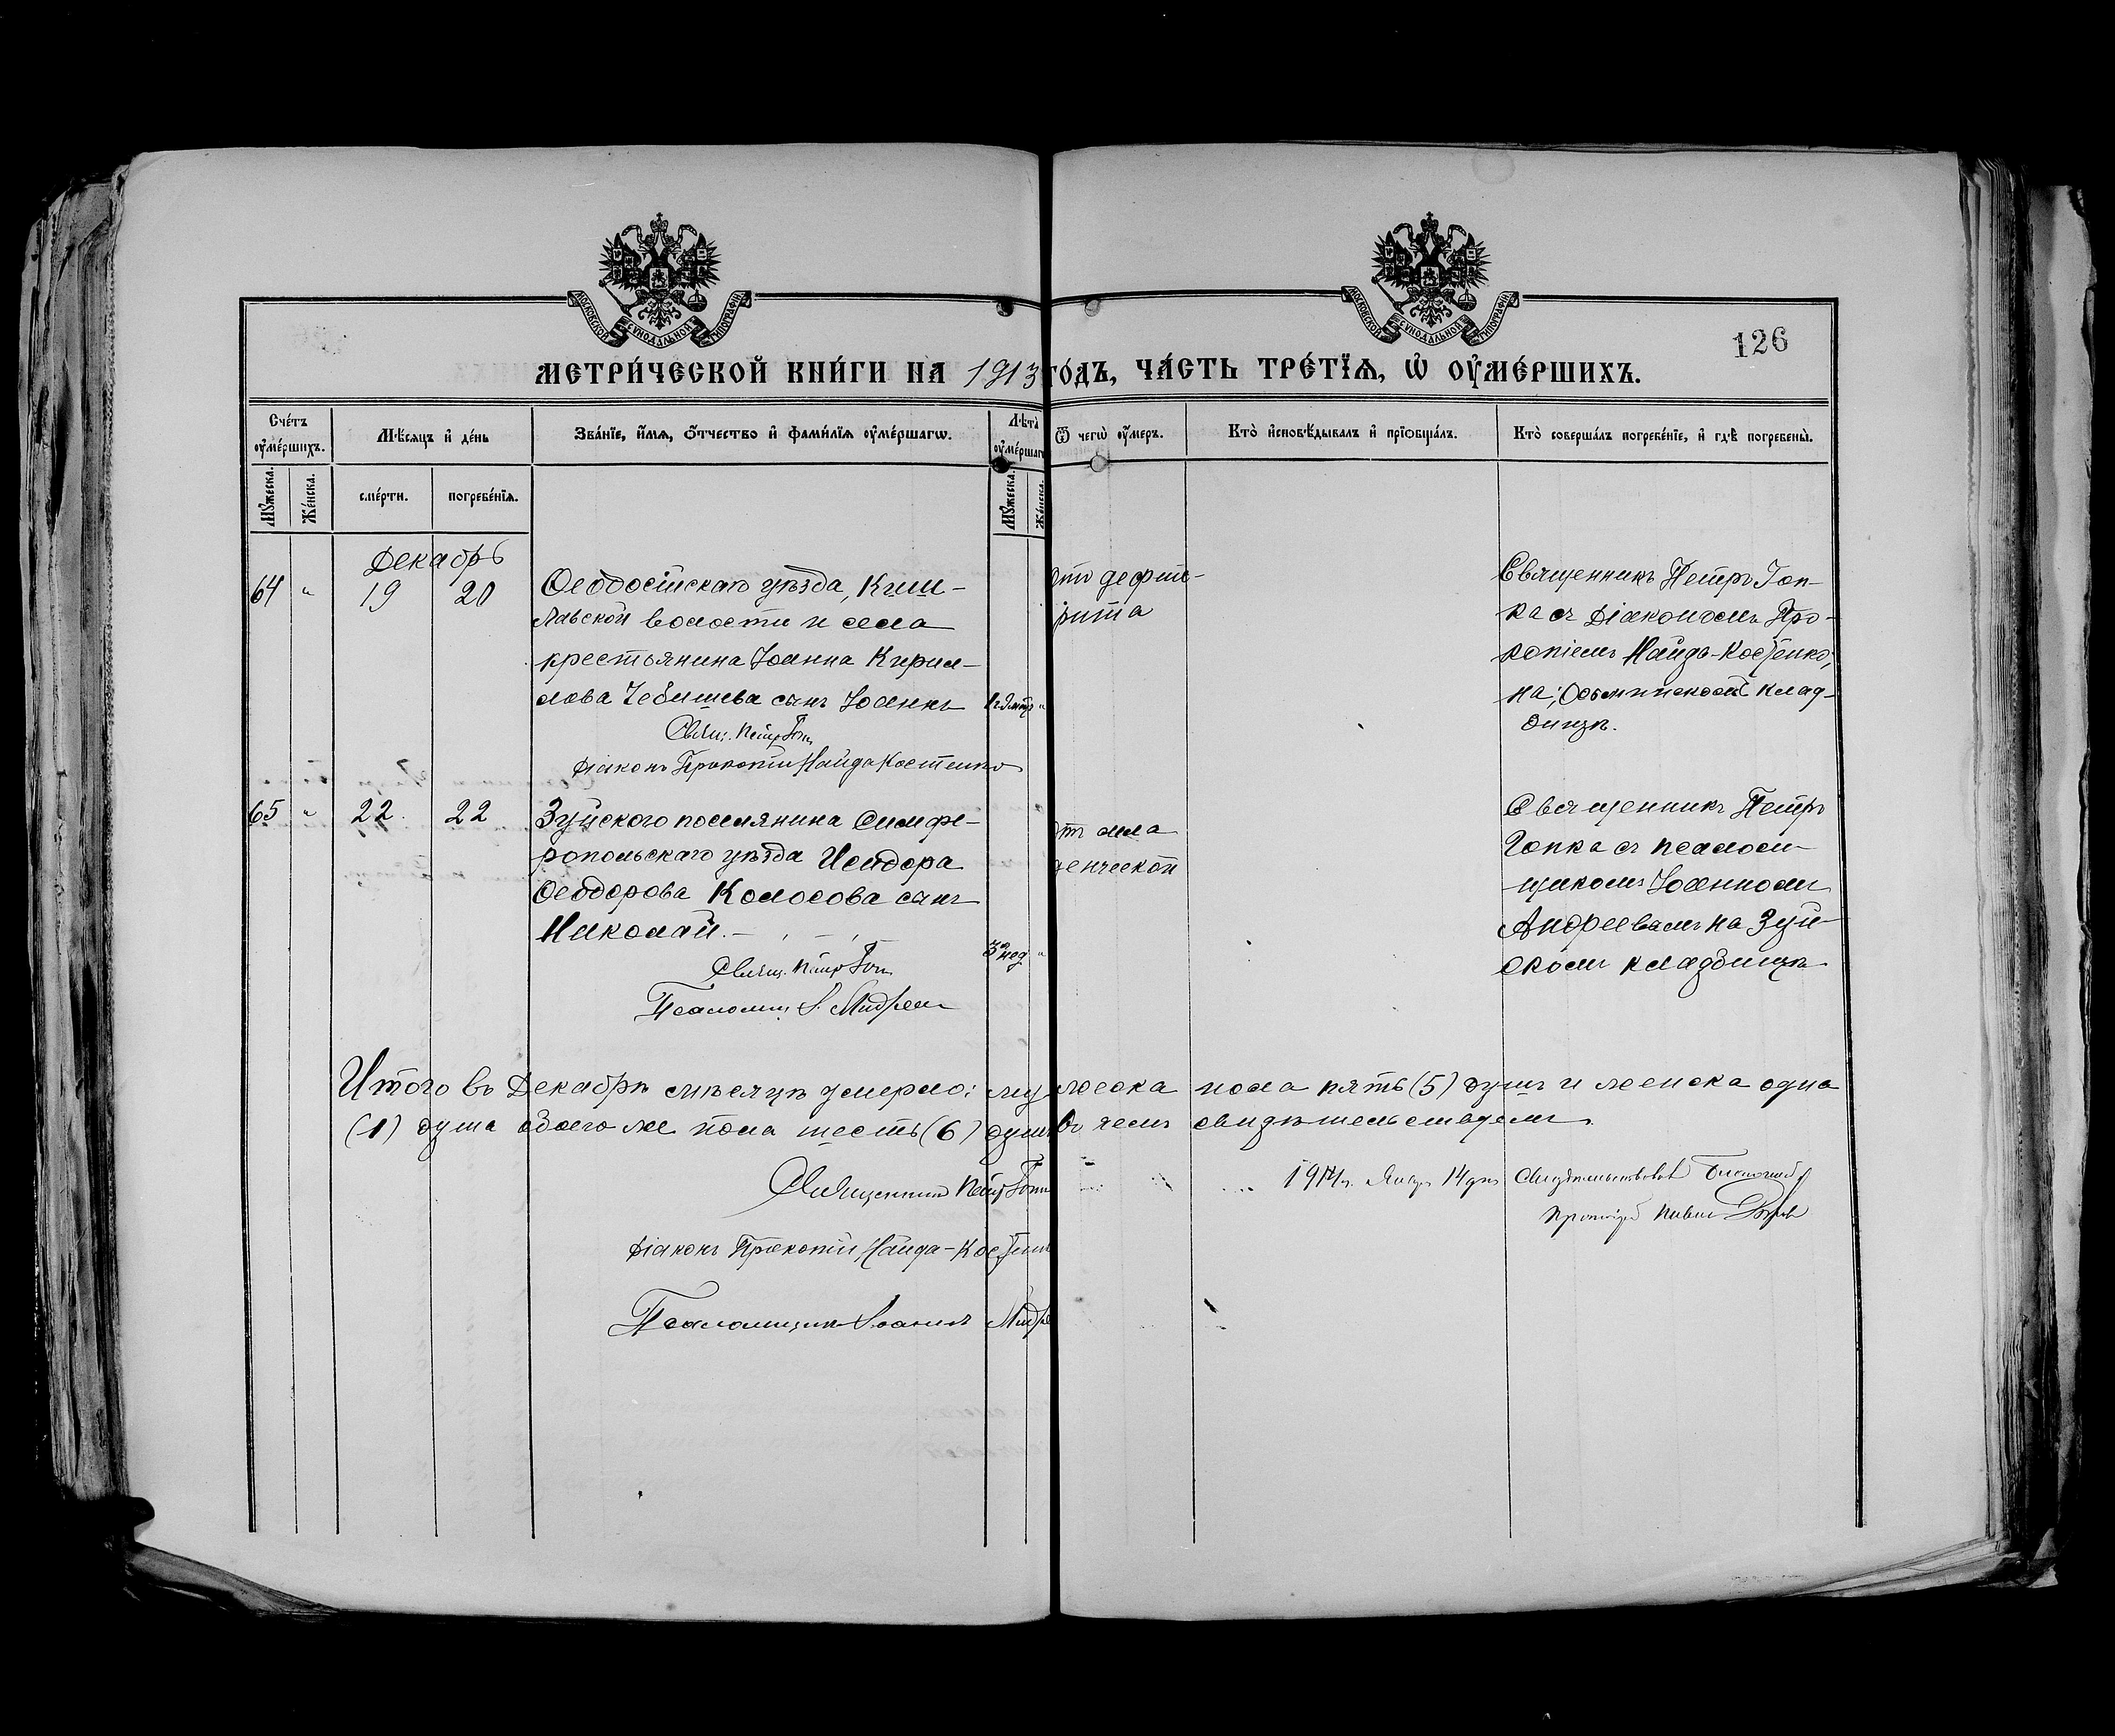 МОСКОВСКОЙ СУНОДАЛЬНОЙ ТИПОГРАФІИ
МОСКОВСКОЙ СУНОДАЛЬНОЙ ТИПОГРАФІИ
126
МЕТРИ́ЧЕСКОЙ КНИ́ГИ НА 1913 ГО́ДЪ, ЧА́СТЬ ТРЕ́ТЇѦ, Ѡ҆ ОУ҆МЕ́РШИХЪ.
Сче́тъ оу҆ме́ршихъ.
Мѣсяцъ и҆ де́нь
Зва́нїе, и҆́мѧ, ѻ҆́тчество и҆ фами́лїѧ оу҆ме́ршагѡ.
Лѣта̀ оу҆ме́ршаг
Ѿ чегѡ̀ оу҆́меръ.
Кто̀ и҆сповѣ́дывалъ и҆ прїѡбща́лъ.
Кто̀ соверша́лъ погребе́нїе, и҆ гдѣ̀ погребены̀.
Мꙋ́жеска.
Же́нска.
сме́рти.
погребе́нїѧ.
Мꙋ́жеска.
Же́нска.
Декабрь
64 " 19 20
Ѳеодосійскаго уѣзда, Киш-
лавской волости и села
крестьянина Іоанна Кирил-
лова Чебишева сынъ Іоаннъ
Свящ. Петръ
діаконъ Прокопій Найда Костенко
отъ дефте-
рита
Священникъ Петръ Гоп-
ка съ діакономъ Про-
копіемъ Найдъ-Костенко,
на кладбищѣ.
65 " 22 22
Зуйского поселянина Симфе-
ропольскаго уѣзда Исидора
Ѳеодорова Колосова сынъ
Николай.
3 нед "
Свящ. Петръ
Псаломщ. І. Андреев
отъ мла
денческой
Священникъ Петръ
Гопка съ псалом-
щикомъ Іоанномъ
Андреевымъ на Зуй-
скомъ кладбищѣ
Итого въ Декабрѣ мѣсяцѣ умерло: мужеска пола пять (5) душъ и женска одна
(1) душа обоего же пола шесть (6) душъ въ чемъ свидѣтельствуемъ.
Священникъ Петръ
діаконъ Прокопій Найда-Костенк
Псаломщикъ Іоаннъ Андре
1914 г. Янвр. 14 дня Свидѣтельствовалъ Благочинный
Протоіерей Павелъ